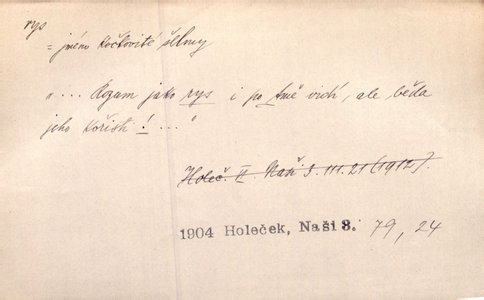 rys
= jméno kočkovité šelmy
"... Agam jako rys i po tmě vidí, ale běda
jeho kořisti! ..."
Holeč. II. Naš 3. III. 21 (1912).
1904 Holeček, Naši 3. 79, 24